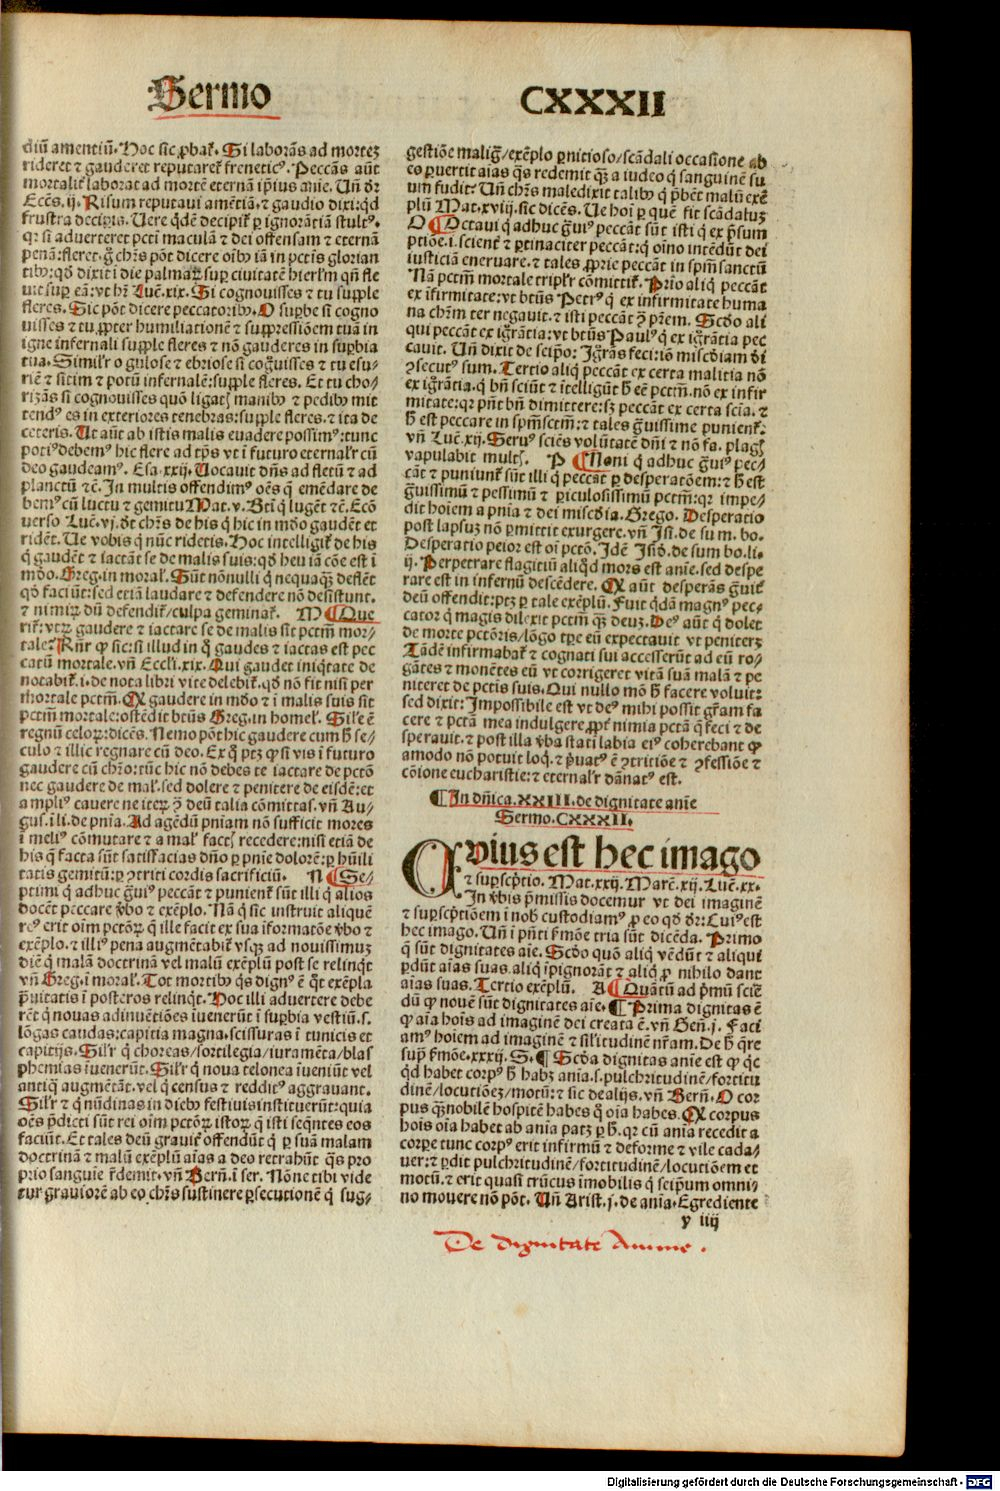 Sermo
CXXXII
diū amentiū. Hoc sic ꝓbat̃. Si laborās ad mortez
rideret ⁊ gauderet reputaret̃ frenetic⁹. Peccās aūt
mortalit̃ laborat ad mortē eternā ip̄ius aīe. Uñ dr̄
Eccēs. ij. Risum reputaui amētiā. ⁊ gaudio dixi: qd̄
frustra deciperis. Uere qd̄ē decipit̃ ꝑ ignorātiā stult⁹.
qꝛ si aduerteret pctī maculā ⁊ dei offensam ⁊ eternā
penā: fleret. g̊ chr̄s pōt dicere oīb⁹ iā in pctīs glorian
tib⁹: qd̄ dixit ī die palmaꝝ sup̲ ciuitatē hierl̄m qn̄ fle
uit sup̲ eā: vt hr̄ Luē. xix. Si cognouisses ⁊ tu supple
fleres. Sic pōt dicere peccatorib⁹. O supbe si cogno
uisses ⁊ tu ꝓpter humiliationē ⁊ suppressiōem tuā in
igne infernali supple fleres ⁊ nō gauderes in supbia
tua. Similr̄ o gulose ⁊ ebriose si cog̊uisses ⁊ tu esu/
riē ⁊ sitim ⁊ potū infernalē: supple fleres. Et tu cho/
rizās si cognouisses quō ligat; manib⁹ ⁊ pedib⁹ mit
tend⁹ es in exteriores tenebras: supple fleres. ⁊ ita de
ceteris. Ut aūt ab istis malis euadere possim⁹: tunc
poti⁹ debem⁹ hic flere ad tp̄s vt ī futuro eternal̓r cū
deo gaudeam⁹. Esa. xxij. Uocauit dn̄s ad fletū ⁊ ad
planctū ⁊c̄. In multis offendim⁹ oēs q̄ emēdare de
bem⁹ cū luctu ⁊ gemitu Mat. v. Btī q̄ lugēt ⁊c̄. Ecō
verso Luē. vj. dt̄ chr̄s de his q̄ hic in mdo gaudēt et
ridēt. Ue vobis q̄ nūc ridetis. Hoc intelligit̃ de his
q̄ gaudēt ⁊ iactāt se de malis suis: qd̄ heu iā cōe est ī
mdo. Greg. in moral̓. Sūt nōnulli q̄ nequaqꝫ deflēt
qd̄ faciūt: sed etiā laudare ⁊ defendere nō desistunt.
⁊ nimiꝝ dū defendit̃/ culpa geminat̃. M ¶ Que
rit̃: vtrꝝ gaudere ⁊ iactare se de malis sit pctm̄ mor/
tale? Rn̄r ꝙ sic: si illud in q̄ gaudes ⁊ iactas est pec
catū mortale. vn̄ Eccl̓i. xix. Qui gaudet iniq̄tate de
notabit̃. i. de nota libri vite delebit̃. qd̄ nō fit nisi per
mortale pctm̄. Q̊ gaudere in mdo ⁊ ī malis suis sit
pctm̄ mortale: ostēdit btūs Greg. in homel̓. Sil̓e ē
regnū celoꝝ: dicēs. Nemo pōt hic gaudere cum h̄ se/
culo ⁊ illic regnare cū deo. Ex q̊ ptꝫ ꝙ si vis ī futuro
gaudere cū chr̄o: tūc hic nō debes te iactare de pctō
nec gaudere de mal̓. sed dolere ⁊ penitere de eisdē: et
ampli⁹ cauere ne iteꝝ ꝯ deū talia cōmittas. vn̄ Au/
gus. ī li. de pn̄ia. Ad agēdū pn̄iam nō sufficit mores
ī meli⁹ cōmutare ⁊ a mal̓ fact; recedere: nisi etiā de
his q̄ facta sūt satisfacias dn̄o ꝑ pn̄ie dolorē: ꝑ hūili
tatis gemitū: ꝑ ꝯtriti cordis sacrificiū. N ¶ Se/
ptimi q̄ adhuc g̊ui⁹ peccāt ⁊ punient̃ sūt illi q̄ alios
docēt peccare v̄bo ⁊ exēplo. Nā q̄ sic instruit aliquē
re⁹ erit oīm pctōꝝ q̄ ille facit ex sua īformatōe v̄bo ⁊
exēplo. ⁊ illi⁹ pena augmētabit̃ vsqꝫ ad nouissimuꝫ
diē q̄ malā doctrinā vel malū exēplū post se relinq̄t
vn̄ Greg. ī moral̓. Tot mortib⁹ q̄s dign⁹ ē q̄t exēpla
p̄uitatis ī posteros relinq̄t. Hoc illi aduertere debe
rēt q̄ nouas adinuētiōes īuenerūt ī supbia vestiū. s.
lōgas caudas: capitia magna. scissuras ī tunicis et
capitijs. Sil̓r q̄ choreas/ sortilegia/ iuramēta/ blas
phemias īuenerūt. Sil̓r q̄ noua telonea īueniūt vel
antiq̄ augmētāt. vel q̄ census ⁊ reddit⁹ aggrauant.
Sil̓r ⁊ q̄ nūdinas in dieb⁹ festiuis instituerūt: quia
oēs p̄dicti sūt rei oīm pctōꝝ istoꝝ q̄ isti seq̄ntes eos
faciūt. Et tales deū grauit̃ offendūt q̄ ꝑ suā malam
doctrinā ⁊ malū exēplū aīas a deo retrahūt q̄s pro
prio sanguīe r̄demit. vn̄ Bern̄. ī ser. Nōne tibi vide
tur grauiorē ab eo chr̄s sustinere ꝑsecutionē q̄ sug/
gestiōe malig̊/ exēplo ꝑnitioso/ scādali occasione ab
eo ꝑuertit aīas q̄s redemit qꝫ a iudeo q̄ sanguinē su
um fudit? Un̄ chr̄s maledixit talib⁹ q̄ p̄bēt malū exē
plū Mat. xviij. sic dicēs. Ue hoī ꝑ quē fit scādaluꝫ
O ¶ Octaui q̄ adhuc g̊ui⁹ peccāt sūt isti q̄ ex p̄sum
ptiōe. i. scient̃ ⁊ ꝑtinaciter peccāt: q̄ oīno intēdūt dei
iusticiā eneruare. ⁊ tales ꝓprie peccāt in spm̄ sanctū
Nā pctm̄ mortale tripl̓r cōmittit̃. Prīo aliq̄ peccāt
ex īfirmitate: vt btūs Petr⁹ q̄ ex infirmitate huma
na chr̄m ter negauit. ⁊ isti peccāt ꝯ pr̄em. Scd̄o ali
qui peccāt ex igr̄ātia: vt btūs Paul⁹ q̄ ex igr̄ātia pec
cauit. Un̄ dixit de seipō: Igr̄ās feci: iō mis̄cdiam dī
ꝯsecut⁹ sum. Tertio aliq̄ peccāt ex certa malitia nō
ex igr̄ātia. q̄ bn̄ sciūt ⁊ ītelligūt h̄ eē pctm̄. nō ex infir
mitate: qꝛ pn̄t bn̄ dimittere: sꝫ peccāt ex certa scīa. ⁊
h̄ est peccare in spm̄sctm̄: ⁊ tales g̊uissime punient̃.
vn̄ Luē. xij. Seru⁹ sciēs volūtatē dn̄i ⁊ nō fa. plag;
vapulabit mult;. P ¶ Noni q̄ adhuc g̊ui⁹ pec/
cāt ⁊ puniunt̃ sūt illi q̄ peccāt ꝑ desperatōem: ⁊ h̄ est
g̊uissimū ⁊ pessimū ⁊ ꝑiculosissimū pctm̄: qꝛ impe/
dit hoīem a pn̄ia ⁊ dei mis̄cdia. Grego. Desperatio
post lapsuꝫ nō ꝑmittit exurgere. vn̄ Isī. de su m. bo.
Desperatio peior est oī pctō. Idē Isid̄. de sum bo. li.
ij. Perpetrare flagitiū aliqd̄ mors est aīe. sed despe
rare est in infernū descēdere. Q̊ aūt desperās g̊uit̃
deū offendit: ptꝫ ꝑ tale exēplū. Fuit qd̄ā magn⁹ pec/
cator q̄ magis dilexit pctm̄ qꝫ deuꝫ. De⁹ aūt q̄ dolet
de morte pctōris/ lōgo tp̄e eū expectauit vt peniterꝫ
Tādē infirmabat̃ ⁊ cognati sui accesserūt ad eū ro/
gātes ⁊ monētes eū vt corrigeret vitā suā malā ⁊ pe
niteret de pctīs suis. Qui nullo mō h̄ facere voluit:
sed dixit: Impossibile est vt de⁹ mihi possit gr̄am fa
cere ⁊ pctā mea indulgere ꝓpt̃ nimia pctā q̄ feci ⁊ de
speraui. ⁊ post illa v̄ba stati labia ei⁹ coherebant ꝙ
amodo nō potuit loq̄. ⁊ p̄uat⁹ ē ꝯtritiōe ⁊ ꝯfessiōe ⁊
cōione eucharistie: ⁊ eternal̓r dānat⁹ est.
¶ In dn̄ica. XXIII. de dignitate anīe
Sermo. CXXXII.
Qvius est hec imago
⁊ supscp̄tio. Mat. xxij. Marē. xij. Luē. xx.
In v̄bis p̄missis docemur vt dei imaginē
⁊ supscp̄tiōem ī nob̄ custodiam⁹ ꝑ eo qd̄ dr̄: Cui⁹ est
hec imago. Un̄ ī pn̄ti s̄mōe tria sūt dicēda. Primo
q̄ sūt dignitates aīe. Scd̄o quō aliq̄ vēdūt ⁊ aliqui
ꝑdūt aīas suas. aliq̄ īpignorāt ⁊ aliq̄ ꝑ nihilo dant
aīas suas. Tertio exēplū. A ¶ Quātū ad p̄mū sciē
dū ꝙ nouē sūt dignitates aīe. ¶ Prima dignitas ē
ꝙ aīa hoīs ad imaginē dei creata ē. vn̄ Gen̄. j. Faci
am⁹ hoīem ad imaginē ⁊ sil̓itudinē nr̄am. De h̄ q̄re
sup̄ s̄mōe. xxxij. S. ¶ Scd̄a dignitas anīe est ꝙ qc̄
qd̄ habet corp⁹ h̄ habꝫ anīa. s. pulchritudinē/ fortitu
dinē/ locutiōeꝫ/ motū: ⁊ sic de alijs. vn̄ Bern̄. O cor
pus qꝫ nobilē hospitē habes q̄ oīa habes. Q̊ corpus
hoīs oīa habet ab anīa patꝫ ꝑ h̄. qꝛ cū anīa recedit a
corꝑe tunc corp⁹ erit infirmū ⁊ deforme ⁊ vile cada/
uer: ⁊ ꝑdit pulchritudinē/ fortitudinē/ locutiōem et
motū. ⁊ erit quasi trūcus īmobilis q̄ seip̄um omni/
no mouere nō pōt. Un̄ Arist. j. de anīa. Egrediente
y iiij
De dignitate Anime.
Digitalisierung gefördert durch die Deutsche Forschungsgemeinschaft - DFG